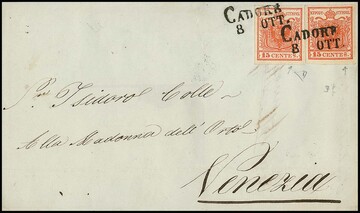 CADORE
8 OTT.
CADORE
8 OTT.
15 CENTES. 15 CENTES.
Isidoro Colle
Alla Madonna dell' Orto
Venezia